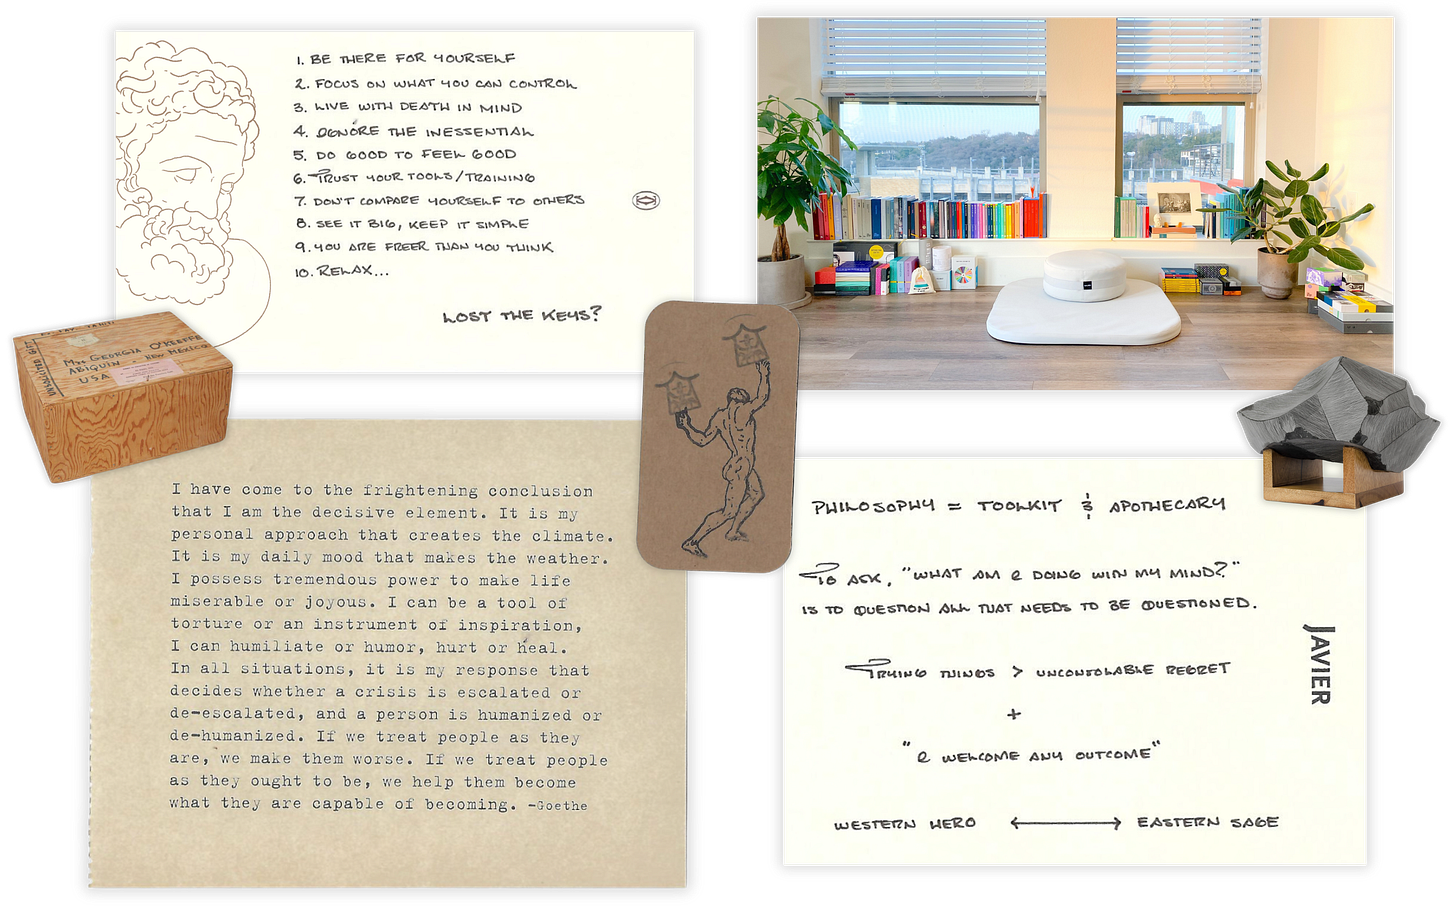 1. BE THERE FOR YOURSELF
2. FOCUS ON WHAT YOU CAN CONTROL
3. LIVE WITH DEATH IN MIND
4. IGNORE THE INESSENTIAL
5. DO GOOD TO FEEL GOOD
6. TRUST YOUR TOOLS/TRAINING
7. DON'T COMPARE YOURSELF TO OTHERS
8. SEE IT BIG, KEEP IT SIMPLE
9. YOU ARE FREER THAN YOU THINK
10. RELAX...
LOST THE KEYS?
Mrs GEORGIA O'KEEFFE
ABIQUIU • NEW MEXICO
USA
I have come to the frightening conclusion
that I am the decisive element. It is my
personal approach that creates the climate.
It is my daily mood that makes the weather.
I possess tremendous power to make life
miserable or joyous. I can be a tool of
torture or an instrument of inspiration,
I can humiliate or humor, hurt or heal.
In all situations, it is my response that
decides whether a crisis is escalated or
de-escalated, and a person is humanized or
de-humanized. If we treat people as they
are, we make them worse. If we treat people
as they ought to be, we help them become
what they are capable of becoming. -Goethe
PHILOSOPHY = TOOLKIT & APOTHECARY
TO ASK, "WHAT AM I DOING WITH MY MIND?"
IS TO QUESTION ALL THAT NEEDS TO BE QUESTIONED.
TRYING THINGS > UNCONSOLABLE REGRET
+
"I WELCOME ANY OUTCOME"
WESTERN HERO ⟷ EASTERN SAGE
JAVIER